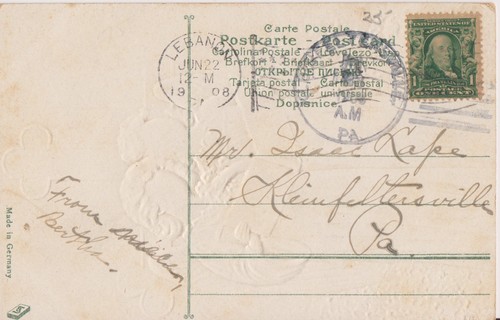 25
Carte Postale
Postkarte - Post Card
Cartolina Postale - Levelező-Lap
Brefkort - Briefkaart - Brevkort
ОТКРЫТОЕ ПИСЬМО
Tarjeta postal - Carta postal
Union postale universelle
Dopisnice
LEBANON
JUN 22
12-M
1908
A.M
PA.
UNITED STATES OF AMERICA
1
Mr. Isaac Lape
Kleinfeltersville
Pa.
From
Bertha.
Made in Germany